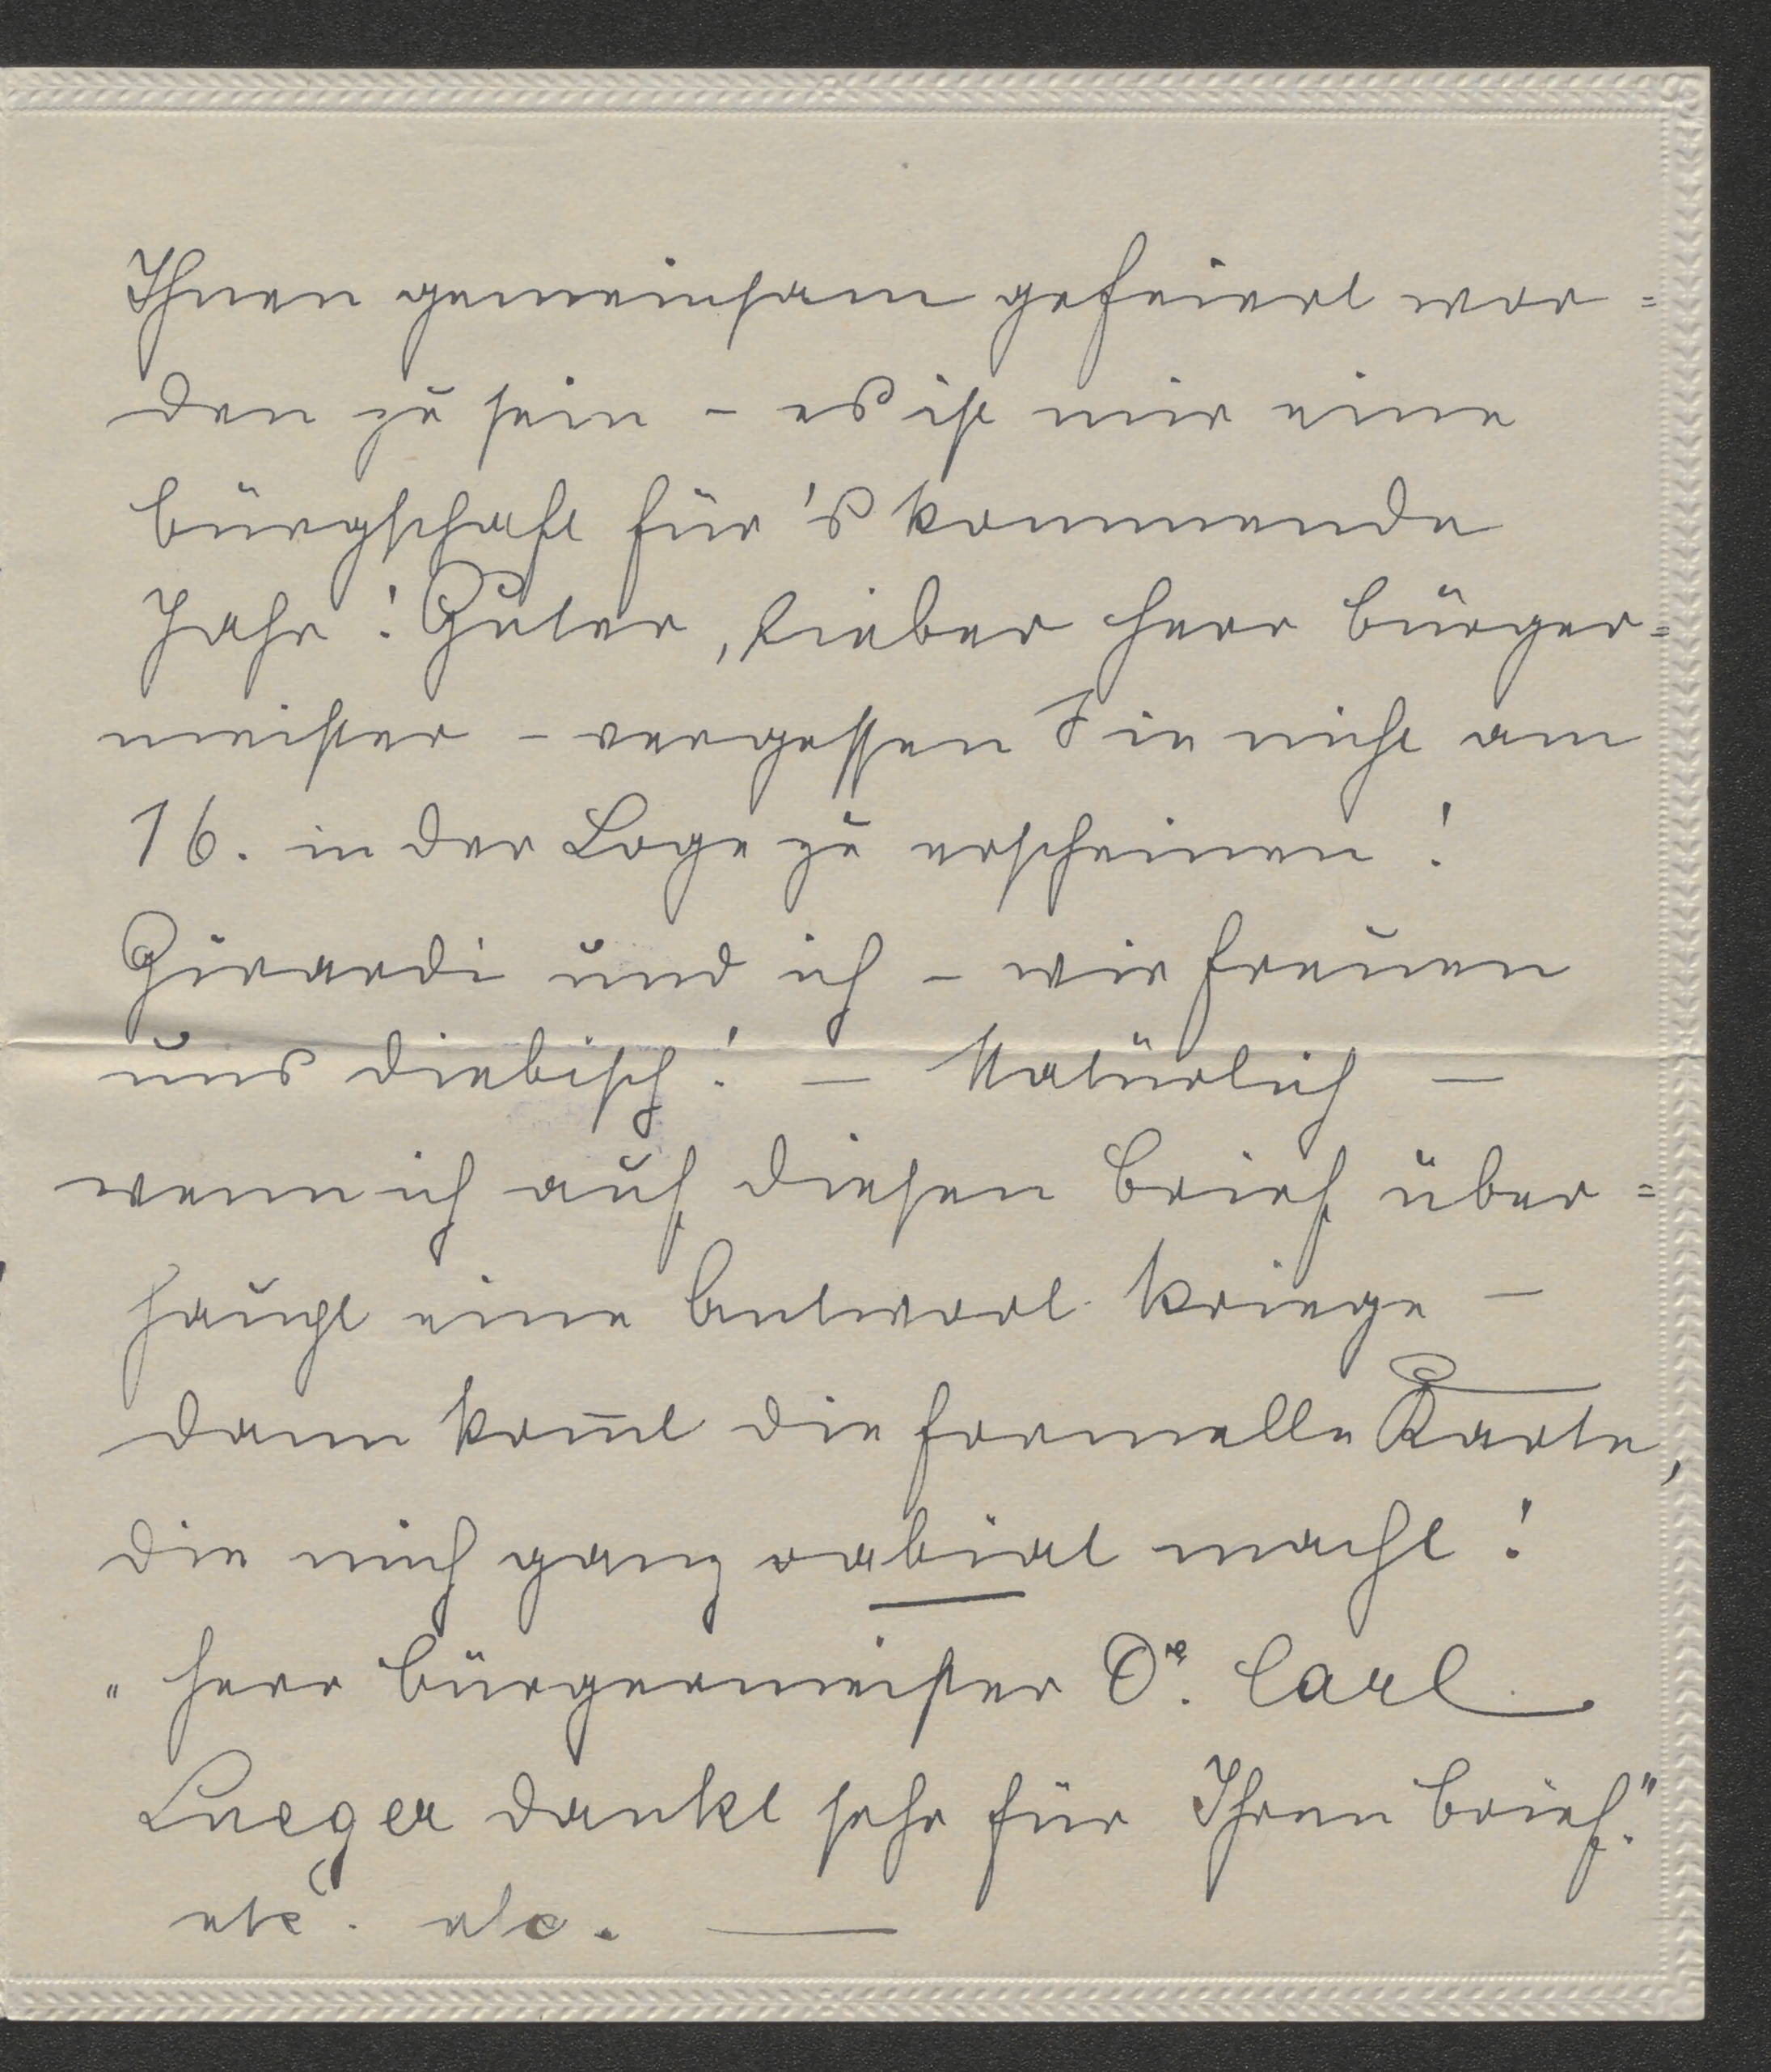 Ihnen gemeinsam gefeiert wor=
den zu sein – es ist mir eine
Bürgschaft für's kommende
Jahr! Guter, lieber Herr Bürger=
meister – vergessen Sie nicht am
16. in der Loge zu erscheinen!
Girardi und ich – wir freuen
uns diebisch! – Natürlich –
wenn ich auf diesen Brief über=
haupt eine Antwort kriege –
dann kom̅t die formelle Karte,
die mich ganz rabiat macht!
„Herr Bürgermeister Dr. Carl
Lueger dankt sehr für Ihren Brief."
etc. etc. —